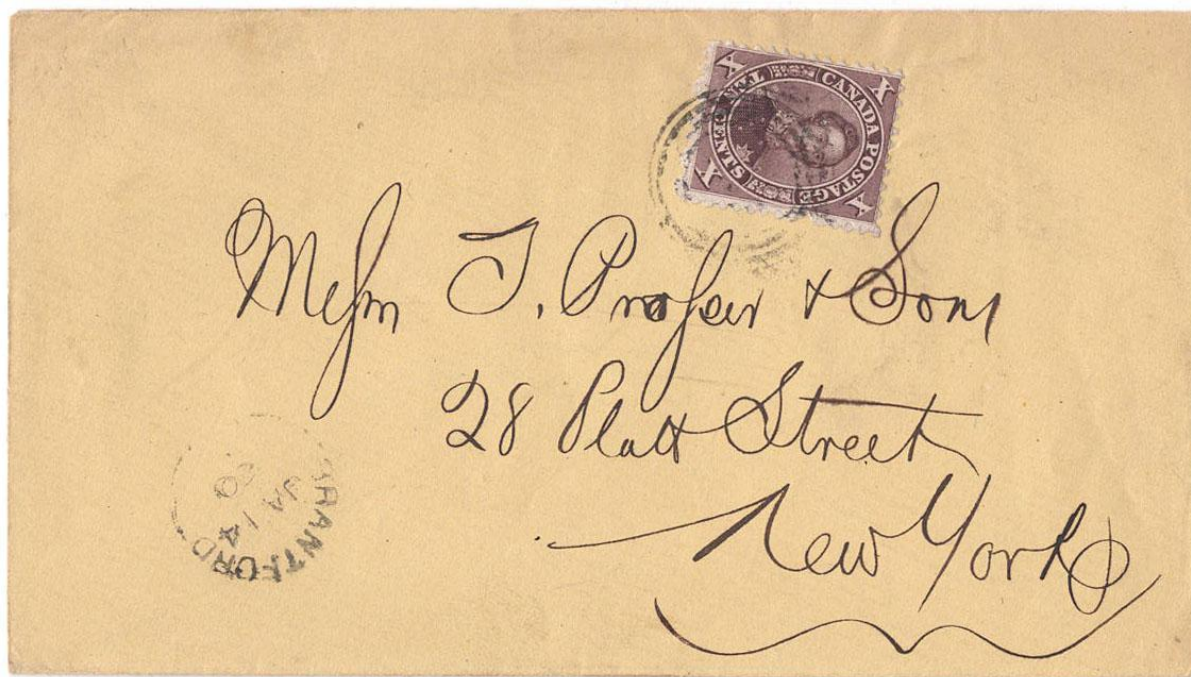 X X X X
CANADA POSTAGE
TEN CENTS
Messrs T. Prosser & Sons
28 Platt Street
New York
BRANTFORD
JA 14
60